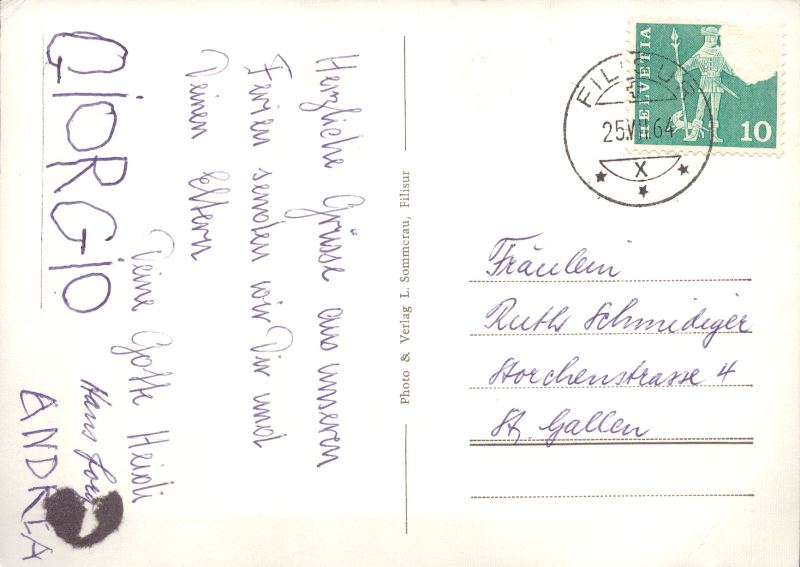 Herzliche Grüsse aus unseren
Ferien senden wir Dir und
Deinen Eltern
Deine Gotte Heidi
Hans
GIORGIO
ANDREA
Photo & Verlag L. Sommerau, Filisur
HELVETIA
10
FILISUR
25.VII.64
X
Fräulein
Ruth Schmidiger
Storchenstrasse 4
St. Gallen